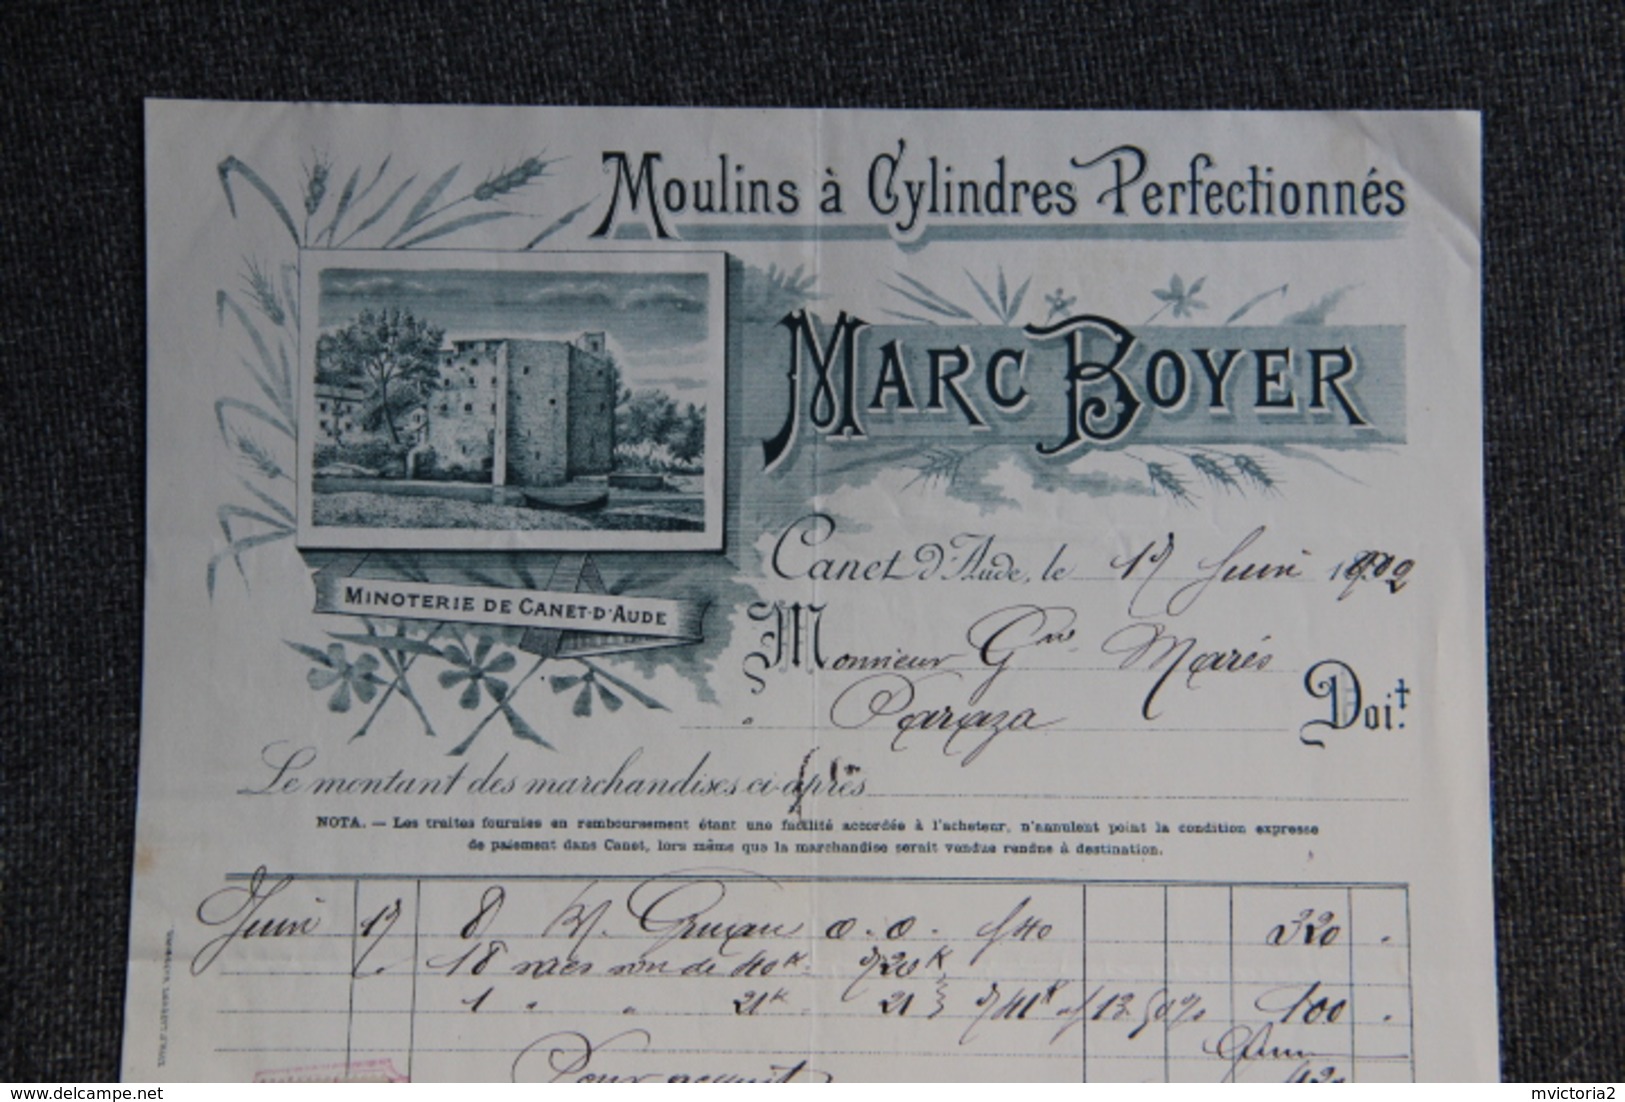 Moulins à Cylindres Perfectionnés
Marc Boyer
Minoterie de Canet-d'Aude
Canet d'Aude, le 17 Juin 1902
Monsieur Marés
à Paraza Doit.
Le montant des marchandises ci-après
NOTA. — Les traites fournies en remboursement étant une facilité accordée à l'acheteur, n'annulent point la condition expresse
de paiement dans Canet, lors même que la marchandise serait vendue rendue à destination.
Juin 17 8 0.0. f 40 320
18 de 40 k 720 k
1 " " 21 k 21 741 k f 13.50 % 100
Pour acquit 420
delcampe.net
mvictoria2